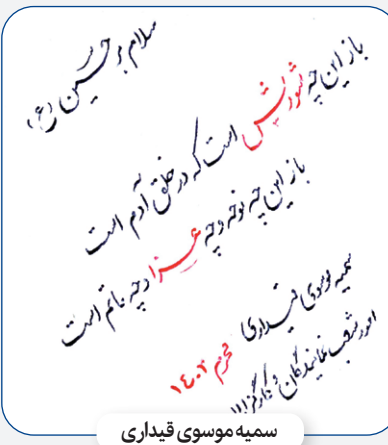 سلام بر حسین (ع)
باز این چه شورش است که در خلق آدم است
باز این چه نوحه و چه عزا و چه ماتم است
سمیه موسوی قیداری
محرم ۱۴۰۲
امور شعب نمایندگان و کارگزاران
سمیه موسوی قیداری